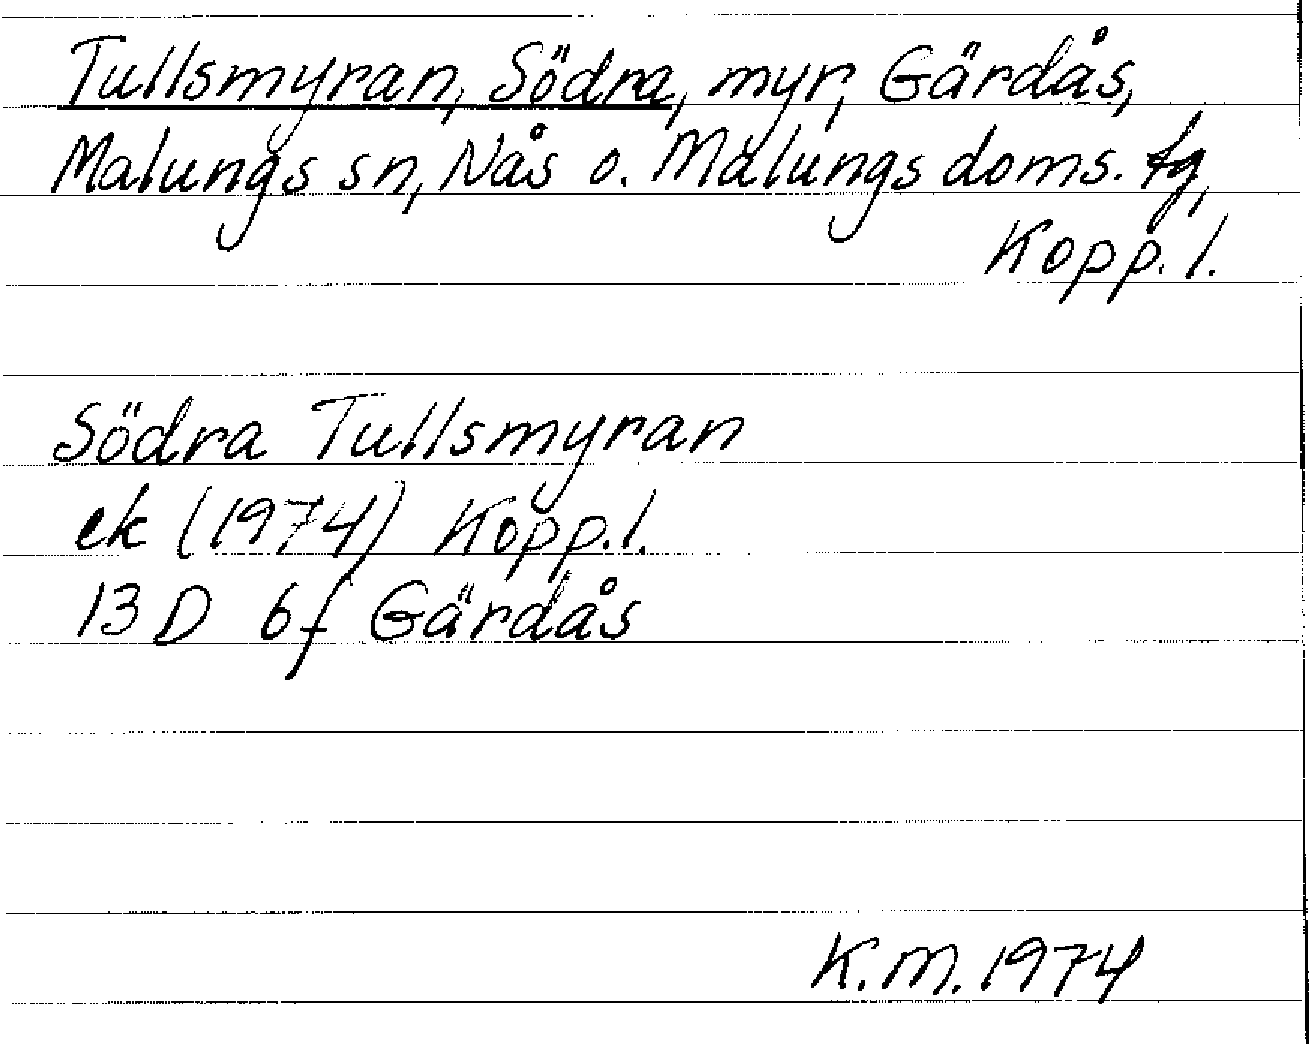 Tullsmyran, Södra, myr, Gärdås,
Malungs sn, Nås o. Malungs doms. tg,
Kopp. l.
Södra Tullsmyran
ek (1974) Kopp. l.
13D 6f Gärdås
K.M. 1974